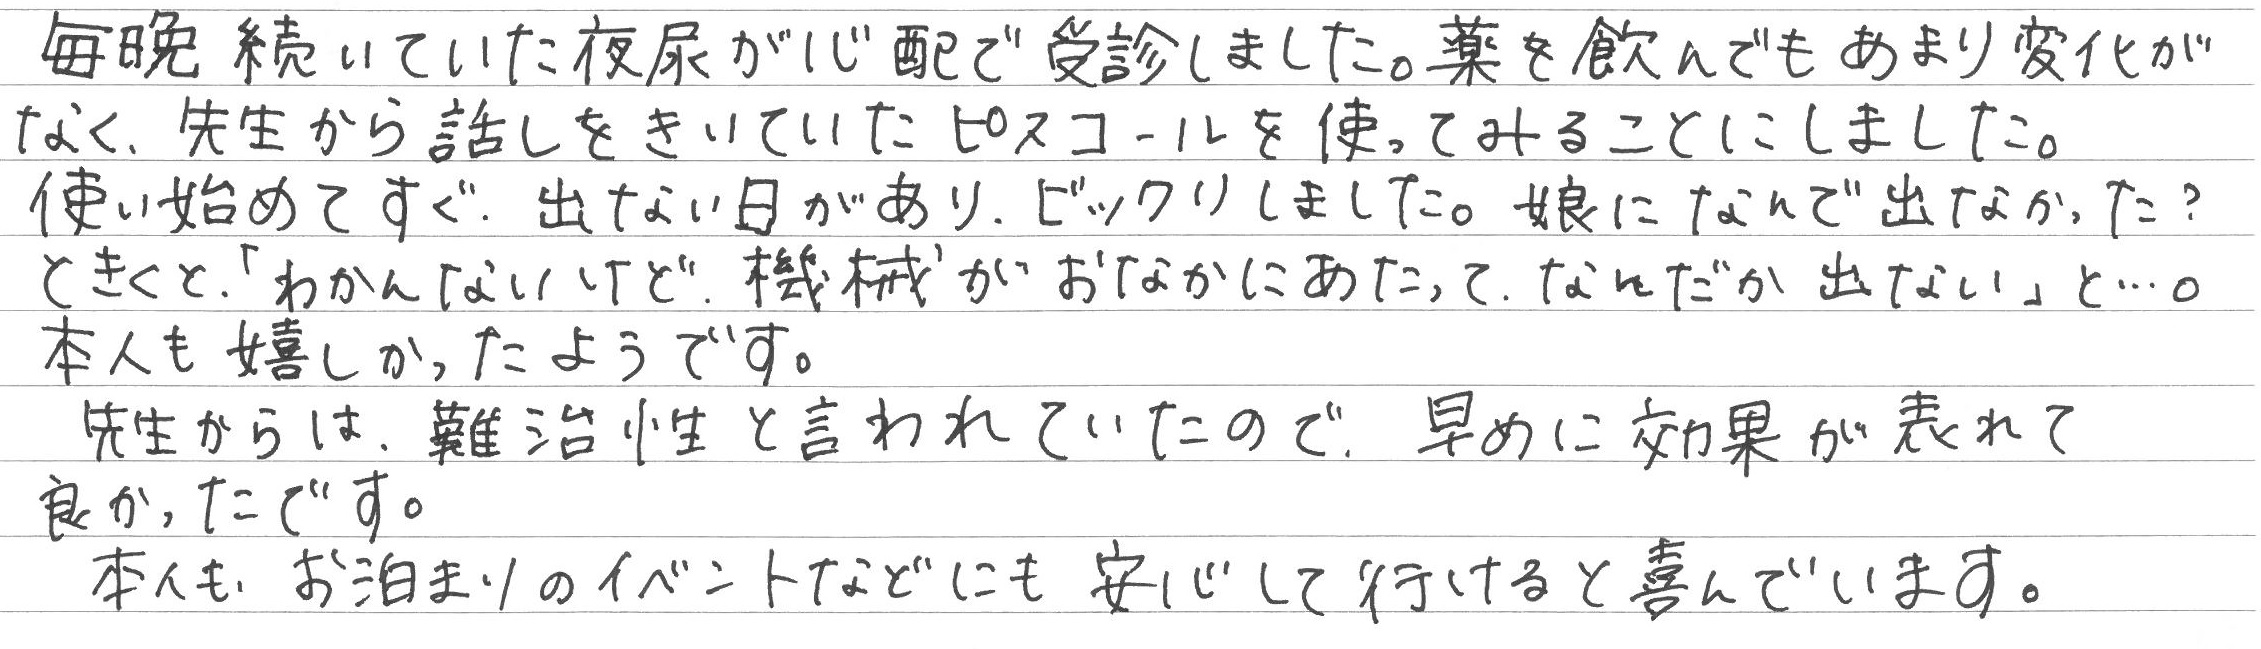 毎晩続いていた夜尿が心配で受診しました。薬を飲んでもあまり変化が
なく、先生から話しをきいていたピスコールを使ってみることにしました。
使い始めてすぐ、出ない日があり、ビックリしました。娘になんで出なかった？
ときくと、「わかんないけど、機械がおなかにあたって、なんだか出ない」と…。
本人も嬉しかったようです。
先生からは、難治性と言われていたので、早めに効果が表れて
良かったです。
本人も、お泊まりのイベントなどにも安心して行けると喜んでいます。